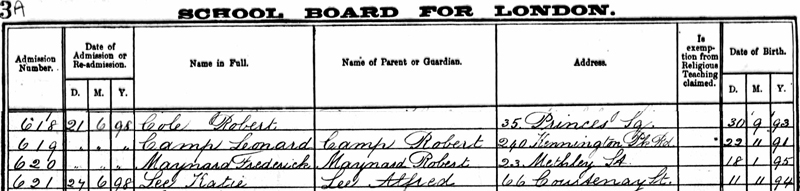 3A
SCHOOL BOARD FOR LONDON.
Admission Number. Date of Admission or Re-admission. D. M. Y. Name in Full. Name of Parent or Guardian. Address. Is exemption from Religious Teaching claimed. Date of Birth. D. M. Y.
618 21 6 98 Cole Robert 35 Princes Sq. 30 9 93
619 " " " Camp Leonard Camp Robert 240 Kennington Pk Rd " 22 11 91
620 " " " Maynard Frederick Maynard Robert 23 Methley St 18 1 95
621 27 6 98 Lee Katie Lee Alfred 66 Courtenay St. 11 11 94